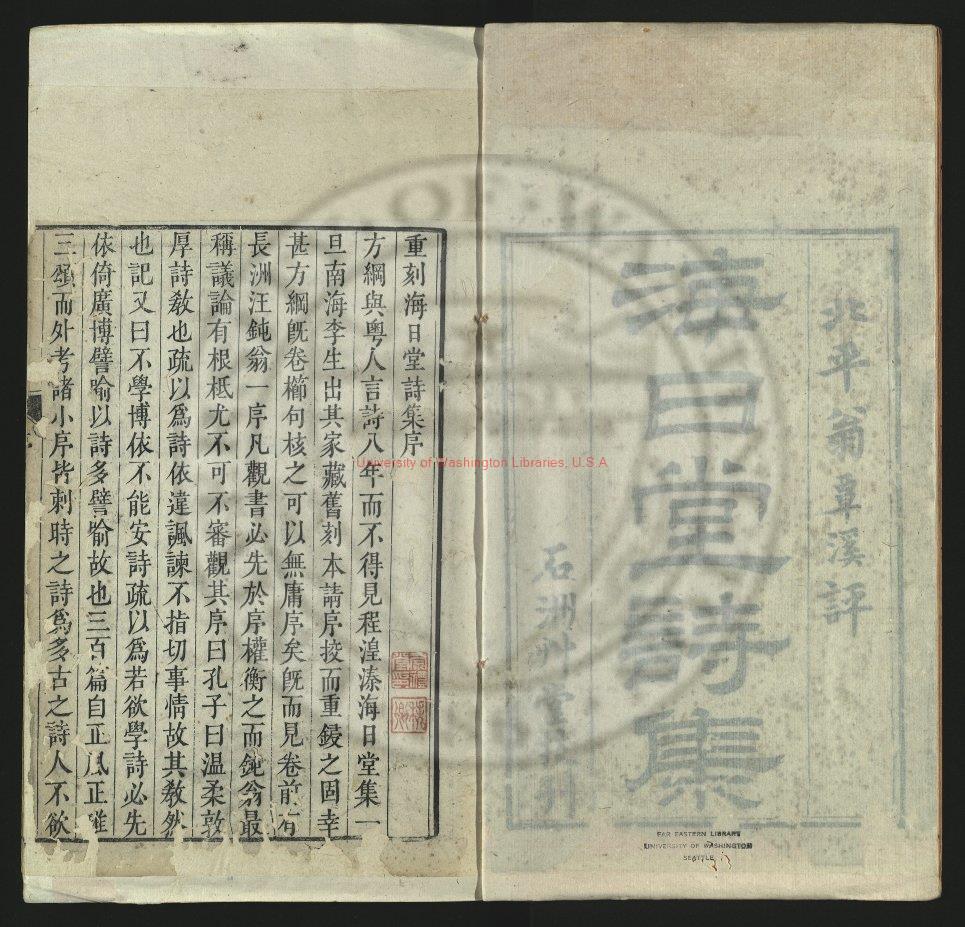 北平翁覃溪評
海日堂詩集
石洲艸堂
重刻海日堂詩集序
方綱與粵人言詩八年而不得見程湟溱海日堂集一
旦南海李生出其家藏舊刻本請序挍而重鋟之固幸
甚方綱旣卷櫛句核之可以無庸序矣旣而見卷前有
長洲汪鈍翁一序凡觀書必先於序權衡之而鈍翁最
稱議論有根柢尤不可不審觀其序曰孔子曰温柔敦
厚詩敎也疏以爲詩依違諷諫不指切事情故其敎然
也記又曰不學博依不能安詩疏以爲若欲學詩必先
依倚廣博譬喻以詩多譬喻故也三百篇自正風正雅
三頌而外考諸小序皆刺時之詩爲多古之詩人不欲
University of Washington Libraries, U.S.A
FAR EASTERN LIBRARY
UNIVERSITY OF WASHINGTON
SEATTLE